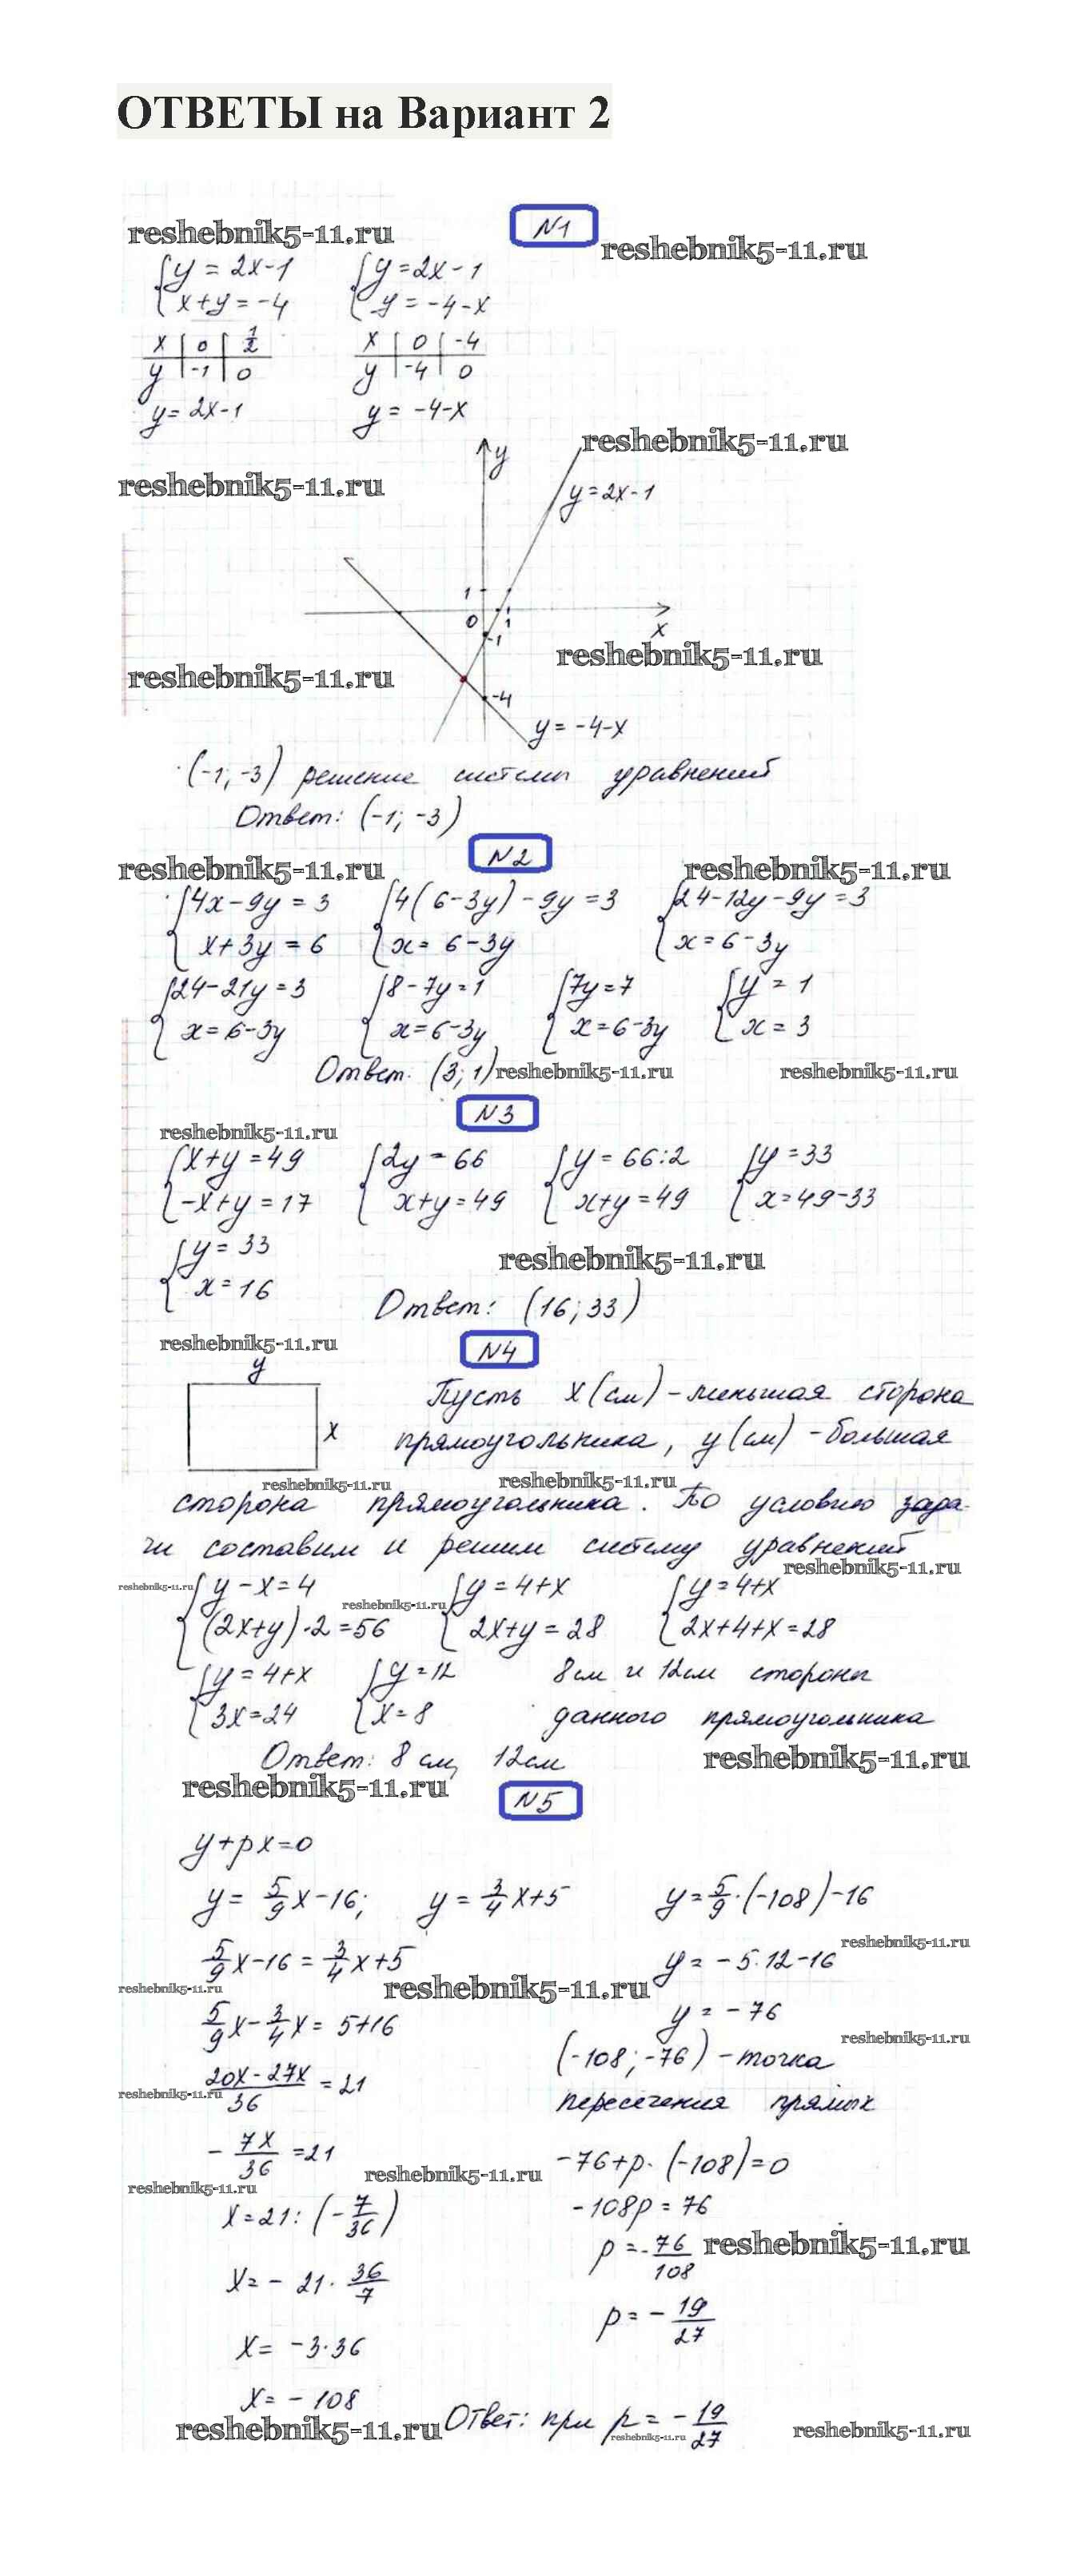 ОТВЕТЫ на Вариант 2
N1
reshebnik5-11.ru
reshebnik5-11.ru
{y = 2x-1 {y=2x-1
x+y=-4 y=-4-x
x | 0 | 1/2 x | 0 | -4
y | -1 | 0 y | -4 | 0
y=2x-1 y=-4-x
reshebnik5-11.ru
y
reshebnik5-11.ru
y=2x-1
1
0 1
x
-1
reshebnik5-11.ru
reshebnik5-11.ru
-4
y=-4-x
(-1; -3) решение системы уравнений
Ответ: (-1; -3)
N2
reshebnik5-11.ru reshebnik5-11.ru
{4x-9y=3 {4(6-3y)-9y=3 {24-12y-9y=3
x+3y=6 x=6-3y x=6-3y
{24-21y=3 {8-7y=1 {7y=7 {y=1
x=6-3y x=6-3y x=6-3y x=3
Ответ. (3; 1) reshebnik5-11.ru reshebnik5-11.ru
N3
reshebnik5-11.ru
{x+y=49 {2y=66 {y=66:2 {y=33
-x+y=17 x+y=49 x+y=49 x=49-33
{y=33
x=16
reshebnik5-11.ru
Ответ: (16; 33)
reshebnik5-11.ru
N4
y
x
Пусть x(см)-меньшая сторона
прямоугольника, y(см)-большая
reshebnik5-11.ru reshebnik5-11.ru
сторона прямоугольника. По условию зада-
чи составим и решим систему уравнений
reshebnik5-11.ru
reshebnik5-11.ru {y-x=4 reshebnik5-11.ru {y=4+x {y=4+x
(2x+y)·2=56 2x+y=28 2x+4+x=28
{y=4+x {y=12 8см и 12см стороны
3x=24 x=8 данного прямоугольника
Ответ: 8 см, 12см reshebnik5-11.ru
reshebnik5-11.ru
N5
y+px=0
y=5/9x-16; y=3/4x+5 y=5/9·(-108)-16
reshebnik5-11.ru
5/9x-16=3/4x+5 y=-5·12-16
reshebnik5-11.ru reshebnik5-11.ru
5/9x-3/4x=5+16 y=-76
reshebnik5-11.ru
(-108; -76)-точка
20x-27x/36=21
reshebnik5-11.ru
пересечения прямых
-7x/36=21 -76+p·(-108)=0
reshebnik5-11.ru
reshebnik5-11.ru
x=21:(-7/36) -108p=76
p=-76/108 reshebnik5-11.ru
x=-21·36/7
p=-19/27
x=-3·36
x=-108
reshebnik5-11.ru Ответ: при p=-19/27 reshebnik5-11.ru
reshebnik5-11.ru